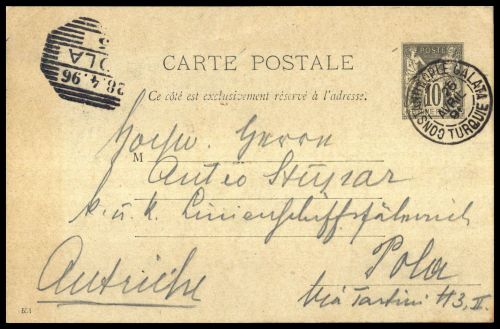 28.4.96
POLA
CARTE POSTALE
POSTE
10
CONSTANTINOPLE GALATA
TURQUIE
Ce côté est exclusivement réservé à l'adresse.
Hochw. Herrn
M
Anteo Stupar
k. u. k. Linienschiffsfähnrich
Pola
Autriche
Via Tartini 43, II.